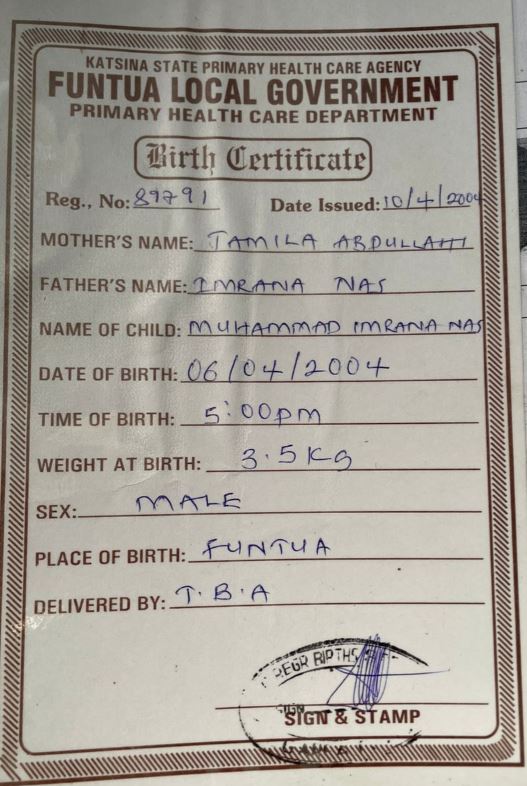 KATSINA STATE PRIMARY HEALTH CARE AGENCY
FUNTUA LOCAL GOVERNMENT
PRIMARY HEALTH CARE DEPARTMENT
Birth Certificate
Reg., No: 89791 Date Issued: 10/4/2004
MOTHER'S NAME: JAMILA ABDULLAHI
FATHER'S NAME: IMRANA NAS
NAME OF CHILD: MUHAMMAD IMRANA NAS
DATE OF BIRTH: 06/04/2004
TIME OF BIRTH: 5:00pm
WEIGHT AT BIRTH: 3.5Kg
SEX: MALE
PLACE OF BIRTH: FUNTUA
DELIVERED BY: T.B.A
REGR BIRTHS
SIGN
SIGN & STAMP